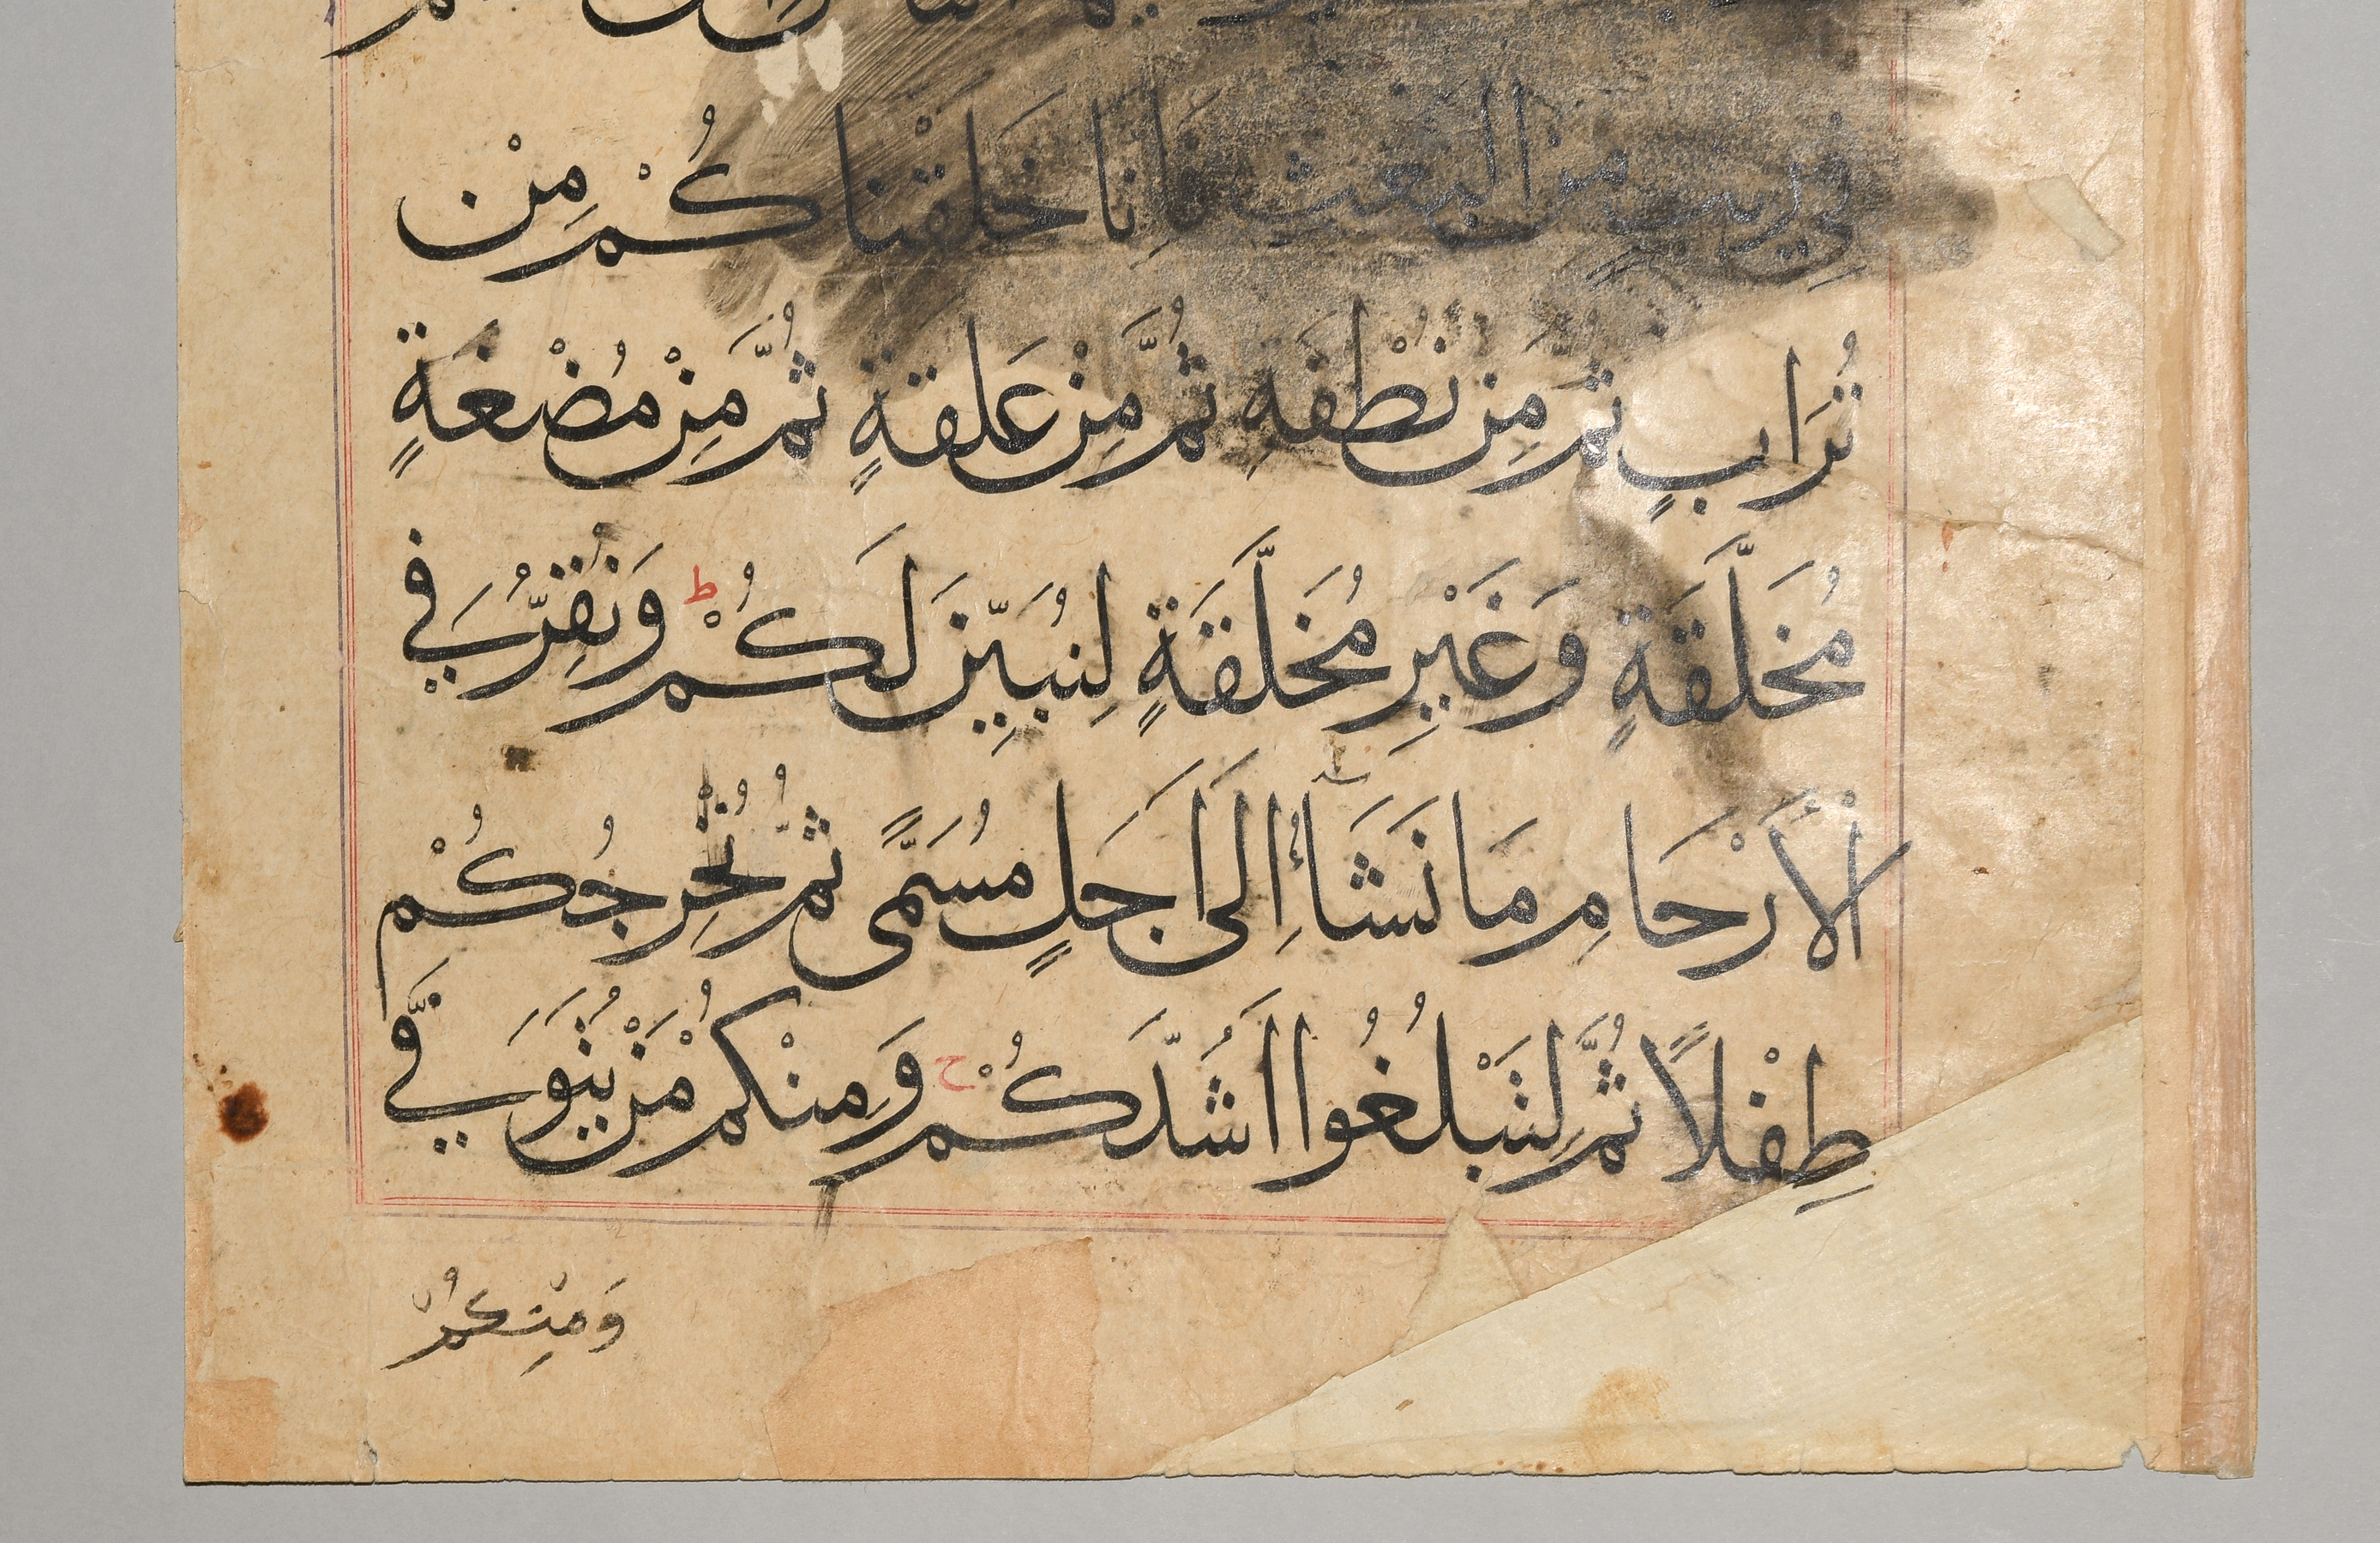 فِي رَيْبٍ مِنَ الْبَعْثِ فَإِنَّا خَلَقْنَاكُمْ مِنْ
تُرَابٍ ثُمَّ مِنْ نُطْفَةٍ ثُمَّ مِنْ عَلَقَةٍ ثُمَّ مِنْ مُضْغَةٍ
مُخَلَّقَةٍ وَغَيْرِ مُخَلَّقَةٍ لِنُبَيِّنَ لَكُمْ ط وَنُقِرُّ فِي
الْأَرْحَامِ مَا نَشَآءُ إِلَى أَجَلٍ مُسَمًّى ثُمَّ نُخْرِجُكُمْ
طِفْلًا ثُمَّ لِتَبْلُغُوا أَشُدَّكُمْ ج وَمِنْكُمْ مَنْ يُتَوَفَّى
وَمِنْكُمْ